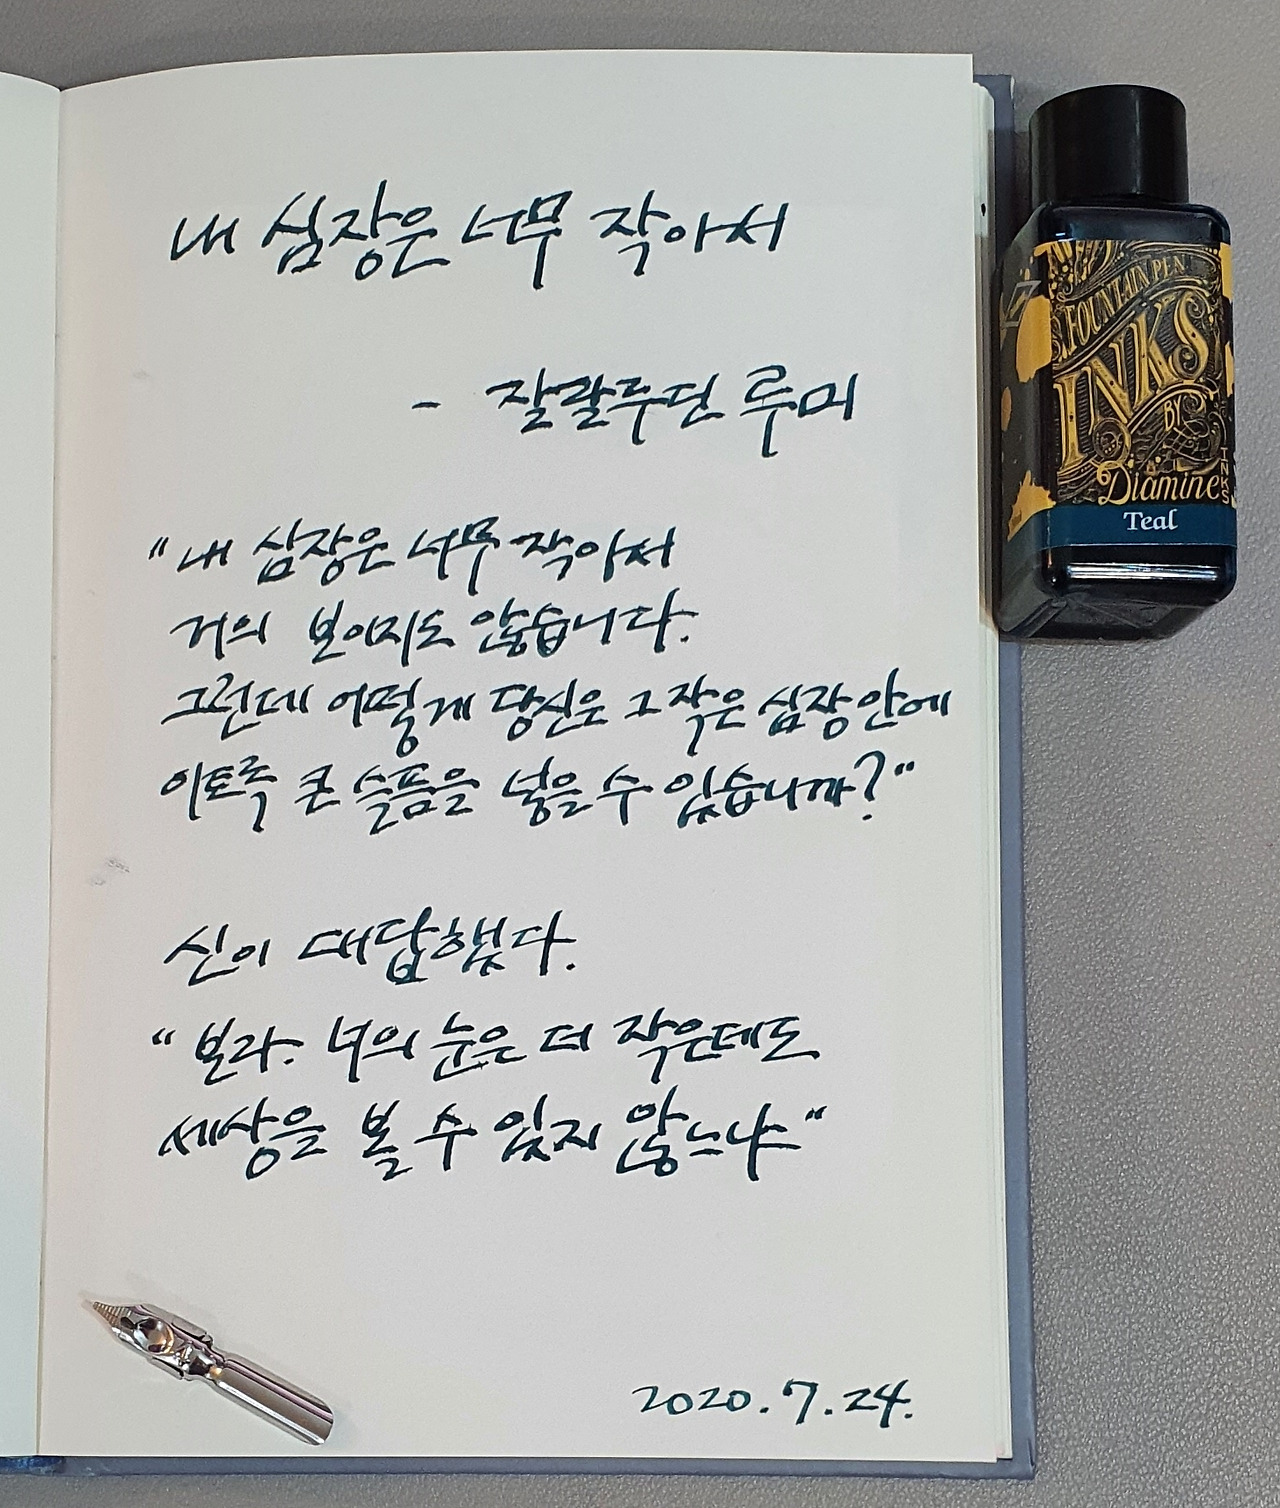 내 심장은 너무 작아서
- 잘랄루딘 루미
"내 심장은 너무 작아서
거의 보이지도 않습니다.
그런데 어떻게 당신은 그 작은 심장 안에
이토록 큰 슬픔을 넣을 수 있습니까?"
신이 대답했다.
"보라. 너의 눈은 더 작은데도
세상을 볼 수 있지 않느냐"
2020.7.24.
FOUNTAIN PEN
INKS
BY
Diamine
INKS
Teal